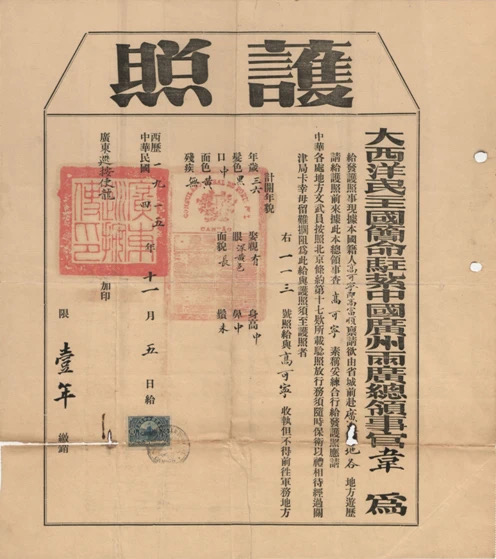 護照
大西洋民主國簡命駐紮中國廣州兩廣總領事官韋 為
給發護照事現據本國籍人高可寧即高富順稟請欲由省城前赴廣 地各 地方遊歷
請給護照前來據此本總領事查 高可寧 素稱妥練合行給發護照應請
中華各處地方文武員按照北京條約第十七欵所載騐照放行務須隨時保衛以禮相待經過關
津局卡幸毋留難攔阻為此給與護照須至護照者
右一一三 號照給與高可寧 收執但不得前往軍務地方
計開年貌
年歲 三六 有 身高 中
髮色 黑 眼 深黃色 鼻 中
口 中 面貌 長 額
面色 黃
殘疾 無
西歷一九一五年
中華民國四年十一月五日給
廣東巡按使龍 加印
限壹年繳銷
廣東巡按使印